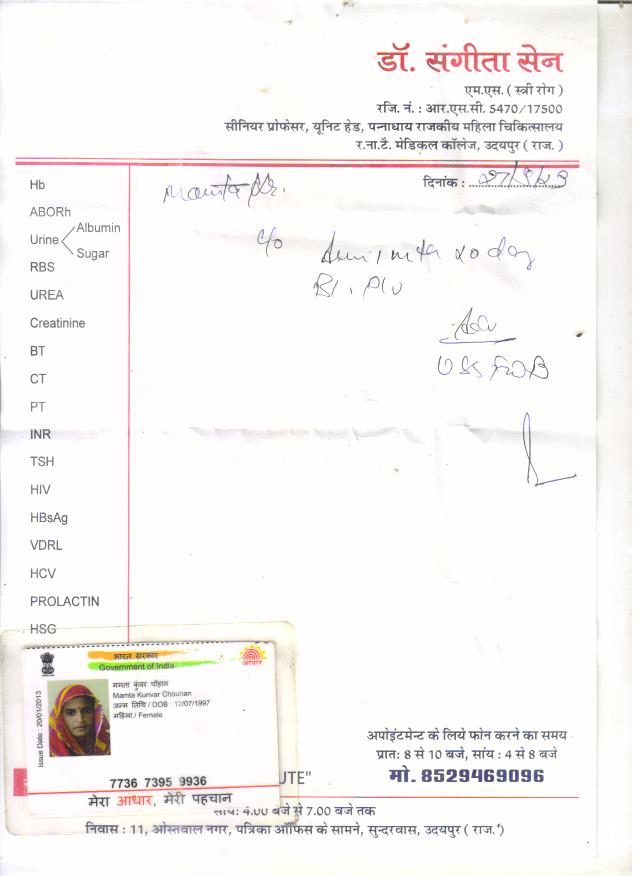 डॉ. संगीता सेन
एम.एस. ( स्त्री रोग )
रजि. नं. : आर.एस.सी. 5470/17500
सीनियर प्रोफेसर, यूनिट हेड, पन्नाधाय राजकीय महिला चिकित्सालय
र.ना.टै. मेडिकल कॉलेज, उदयपुर ( राज. )
दिनांक :
Hb
ABORh
Urine Albumin
Sugar
RBS
UREA
Creatinine
BT
CT
PT
INR
TSH
HIV
HBsAg
VDRL
HCV
PROLACTIN
HSG
c/o
20 day
Adv
भारत सरकार
Government of India
आधार
Issue Date : 20/01/2013
ममता कुंवर चौहान
Mamta Kunvar Chouhan
जन्म तिथि / DOB : 12/07/1997
महिला / Female
7736 7395 9936
मेरा आधार, मेरी पहचान
अपोइंटमेन्ट के लिये फोन करने का समय
प्रातः 8 से 10 बजे, सांय : 4 से 8 बजे
मो. 8529469096
UTE"
सायः 4.00 बजे से 7.00 बजे तक
निवास : 11, ओस्तवाल नगर, पत्रिका ऑफिस के सामने, सुन्दरवास, उदयपुर ( राज. )